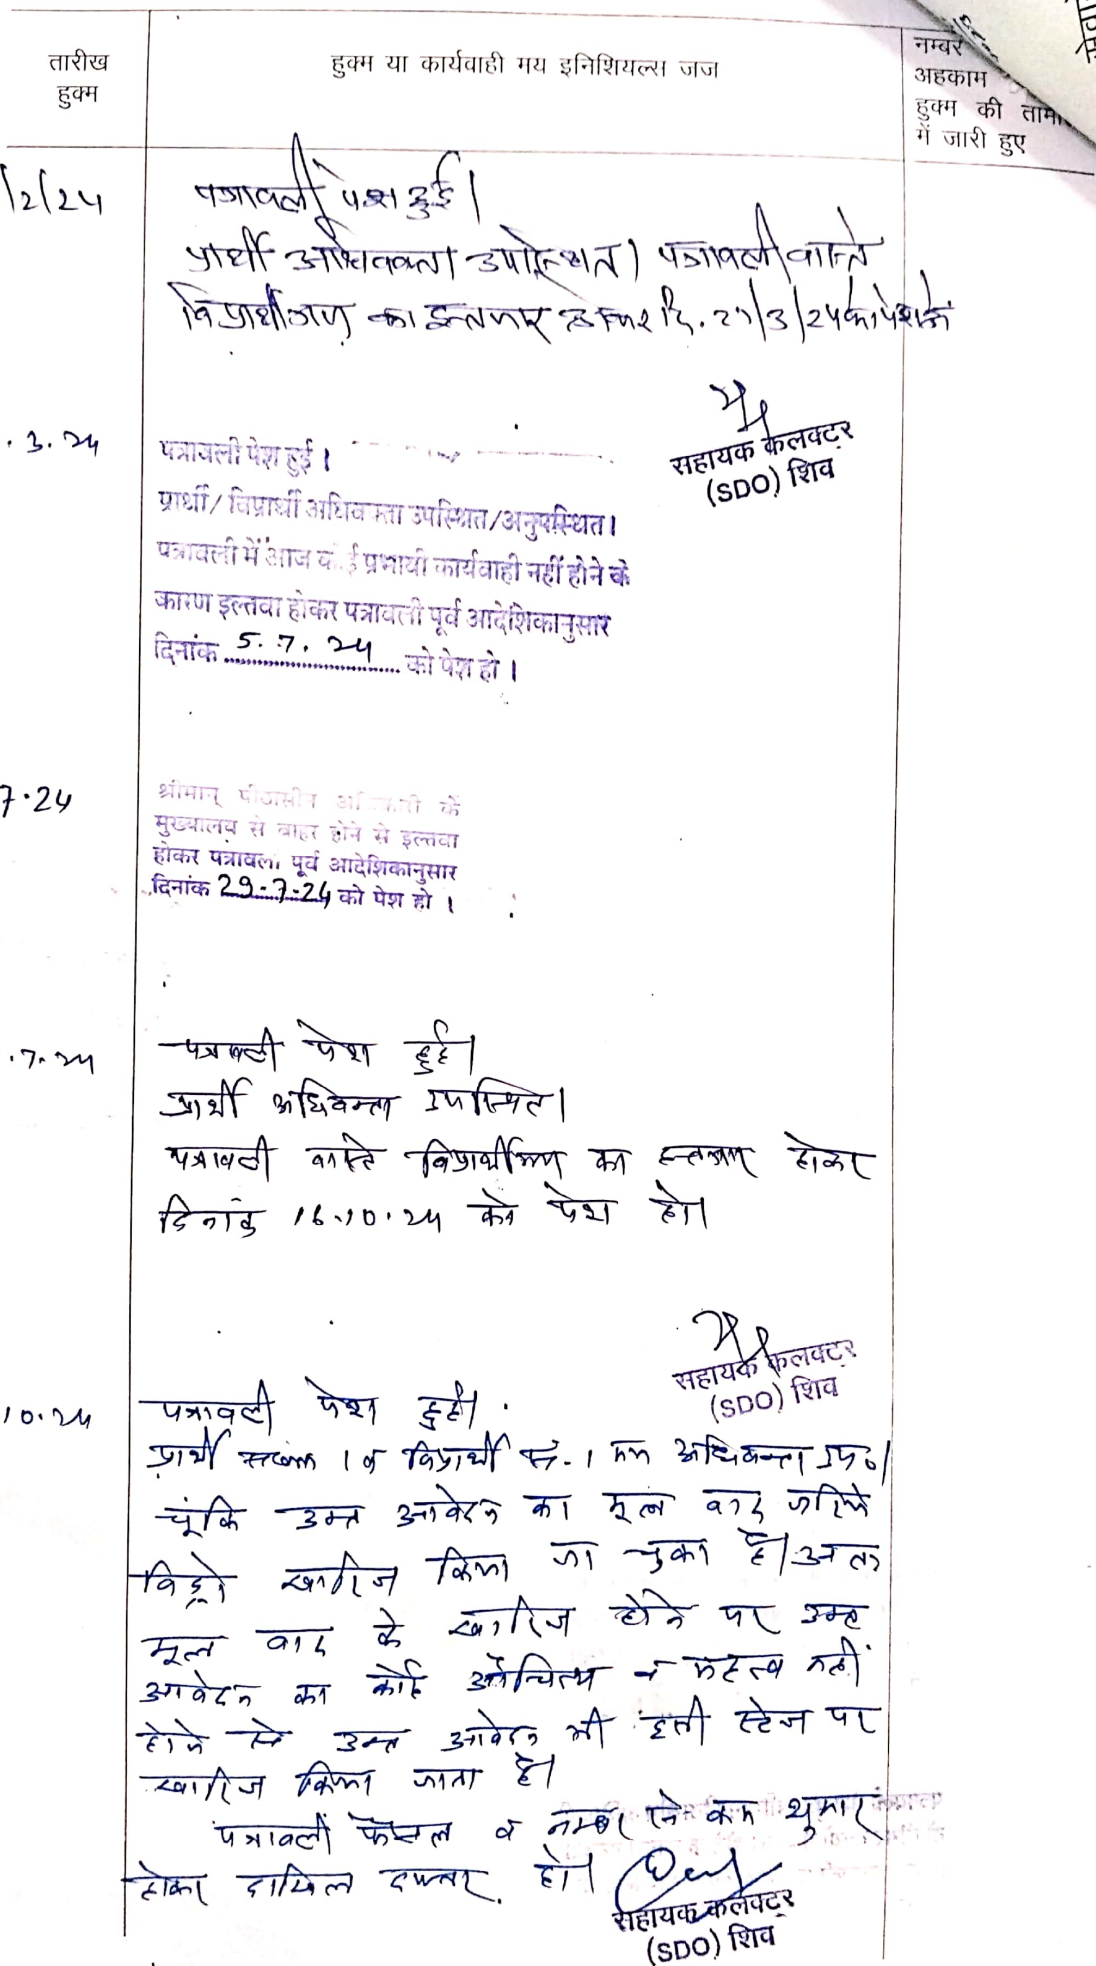 तारीख
हुक्म
हुक्म या कार्यवाही मय इनिशियल्स जज
नम्बर
अहकाम
हुक्म की तामी
में जारी हुए
/2/24
पत्रावली पेश हुई।
प्रार्थी अधिवक्ता उपस्थित। पत्रावली वास्ते
विप्रार्थीगण का इन्तजार होकर दि. 21/3/24 को पेश हो
सहायक कलक्टर
(SDO) शिव
.3.24
पत्रावली पेश हुई।
प्रार्थी/विप्रार्थी अधिवक्ता उपस्थित/अनुपस्थित।
पत्रावली में आज कोई प्रभावी कार्यवाही नहीं होने के
कारण इल्तवा होकर पत्रावली पूर्व आदेशिकानुसार
दिनांक 5.7.24 को पेश हो।
7.24
श्रीमान् पीठासीन अधिकारी के
मुख्यालय से बाहर होने से इल्तवा
होकर पत्रावली पूर्व आदेशिकानुसार
दिनांक 29-7-24 को पेश हो।
.7.24
पत्रावली पेश हुई।
प्रार्थी अधिवक्ता उपस्थित।
पत्रावली वास्ते विप्रार्थीगण का इन्तजार होकर
दिनांक 16.10.24 को पेश हो।
सहायक कलक्टर
(SDO) शिव
10.24
पत्रावली पेश हुई।
प्रार्थी 1 व विप्रार्थी सं. 1 मय अधिवक्ता उप०।
चूंकि उक्त आवेदन का मूल वाद जरिये
विड्रो खारिज किया जा चुका है। अतः
मूल वाद के खारिज होने पर उक्त
आवेदन का कोई औचित्य व महत्व नहीं
होने से उक्त आवेदन भी इसी स्टेज पर
खारिज किया जाता है।
पत्रावली फैसल व नम्बर से कम शुमार
होकर दाखिल दफ्तर हो।
सहायक कलक्टर
(SDO) शिव